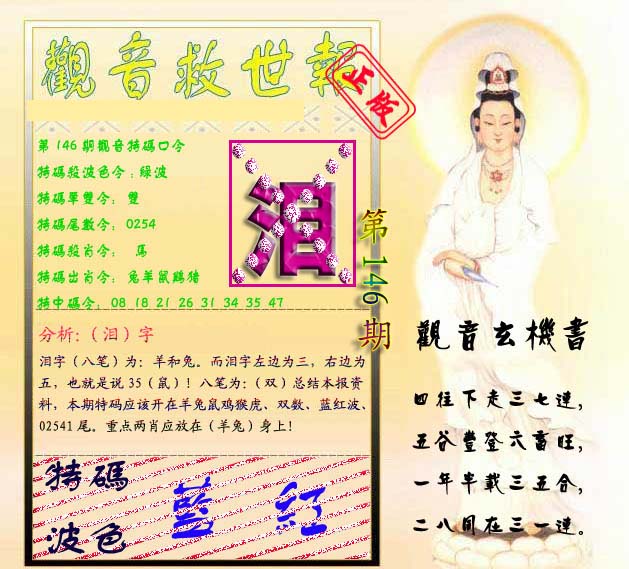 觀音救世報
正版
第146期觀音特碼口令
特碼殺波色令:綠波
特碼單雙令: 雙
特碼尾數令: 0254
特碼殺肖令: 馬
特碼出肖令: 兔羊鼠鷄猪
特中碼令: 08 18 21 26 31 34 35 47
泪
第146期
分析:(泪)字
泪字(八笔)为:羊和兔。而泪字左边为三,右边为
五,也就是说35(鼠)!八笔为:(双)总结本报资
料,本期特码应该开在羊兔鼠鸡猴虎、双数、蓝红波、
02541尾。重点两肖应放在(羊兔)身上!
特碼
波色
藍 紅
觀音玄機書
四往下走三七連,
五谷豐登六畜旺,
一年半載三五合,
二八同在三一連。